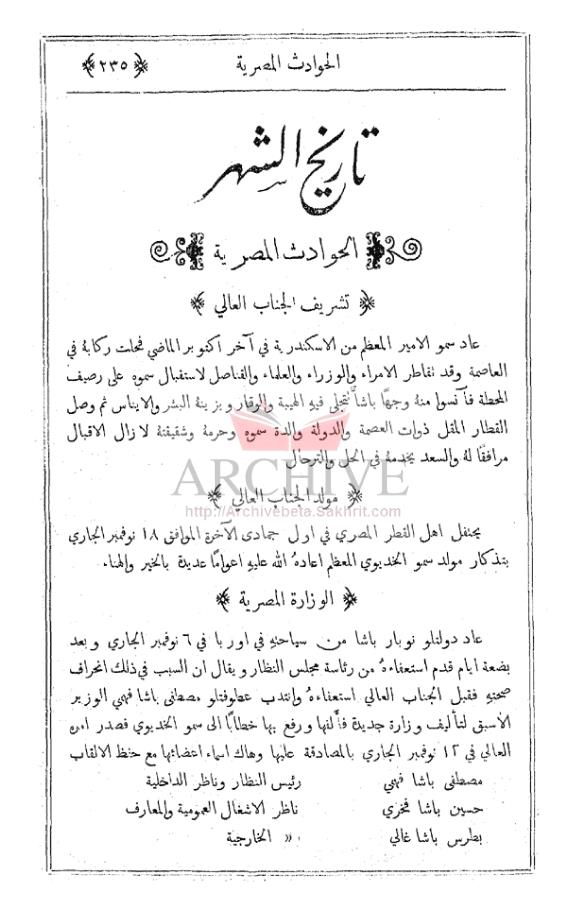 الحوادث المصرية ﴿٢٣٥﴾
تاريخ الشهر
الحوادث المصرية
﴿ تشريف الجناب العالي ﴾
عاد سمو الامير المعظم من الاسكندرية في آخر اكتوبر الماضي فحلت ركابهُ في
العاصمة وقد تقاطر الامراء والوزراء والعلماء والقناصل لاستقبال سموه على رصيف
المحطة فآنسوا منهُ وجهًا باشًّا تتجلى فيهِ الهيبة والوقار ويزينهُ البشر والايناس ثم وصل
القطار المقل ذوات العصمة والدولة والدة سموهِ وحرمهُ وشقيقتهُ لا زال الاقبال
مرافقًا لهُ والسعد يخدمهُ في الحل والترحال
ARCHIVE
﴿ مولد الجناب العالي ﴾
http://Archivebeta.Sakhrit.com
يحتفل اهل القطر المصري في اول جمادى الآخرة الموافق ١٨ نوفمبر الجاري
بتذكار مولد سمو الخديوي المعظم اعادهُ الله عليهِ اعوامًا عديدة بالخير والهناء
﴿ الوزارة المصرية ﴾
عاد دولتلو نوبار باشا من سياحتهِ في اوربا في ٦ نوفمبر الجاري وبعد
بضعة ايام قدم استعفاءهُ من رئاسة مجلس النظار ويقال ان السبب في ذلك انحراف
صحتهِ فقبل الجناب العالي استعفاءهُ وانتدب عطوفتلو مصطفى باشا فهمي الوزير
الاسبق لتأليف وزارة جديدة فألفها ورفع بها خطابًا الى سمو الخديوي فصدر امره
العالي في ١٢ نوفمبر الجاري بالمصادقة عليها وهاك اسماء اعضائها مع حفظ الالقاب
مصطفى باشا فهمي رئيس النظار وناظر الداخلية
حسين باشا فخري ناظر الاشغال العمومية والمعارف
بطرس باشا غالي « الخارجية